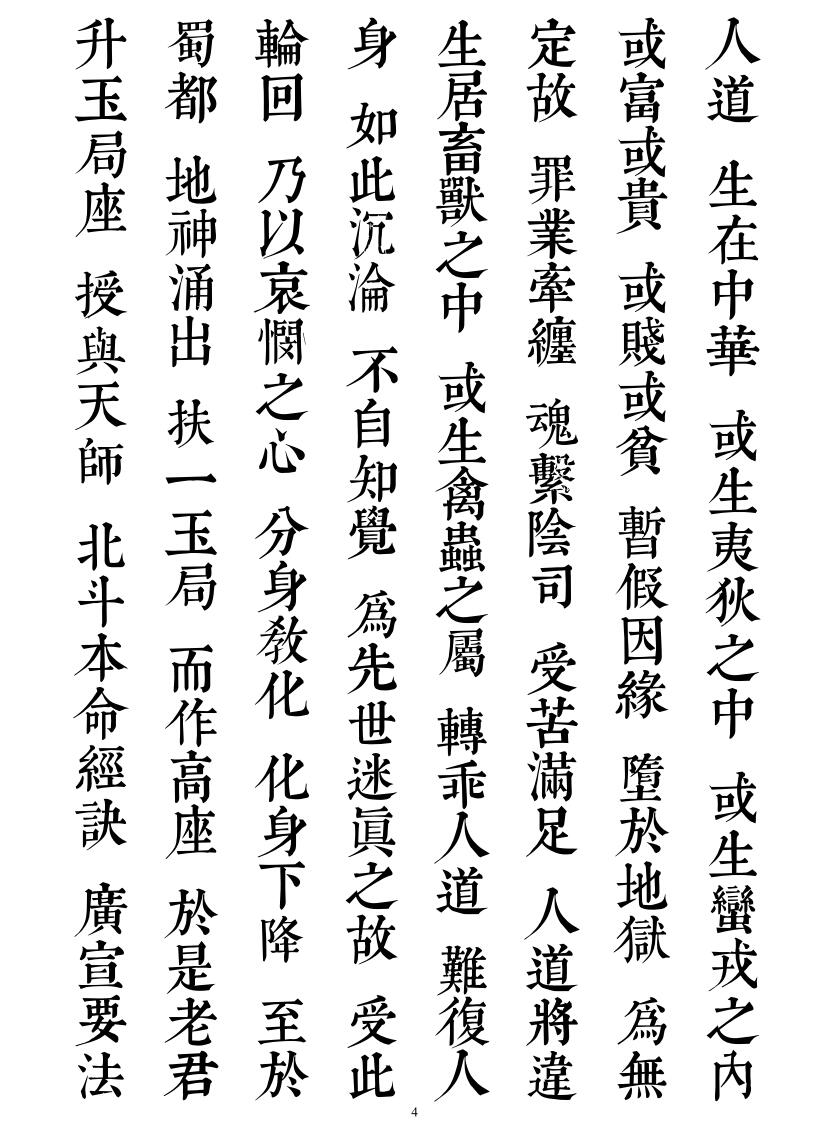 人道　生在中華　或生夷狄之中　或生蠻戎之內
或富或貴　或賤或貧　暫假因緣　墮於地獄　爲無
定故　罪業牽纏　魂繫陰司　受苦滿足　人道將違
生居畜獸之中　或生禽蟲之屬　轉乖人道　難復人
身　如此沉淪　不自知覺　爲先世迷眞之故　受此
輪回　乃以哀憫之心　分身教化　化身下降　至於
蜀都　地神涌出　扶一玉局　而作高座　於是老君
升玉局座　授與天師　北斗本命經訣　廣宣要法
4